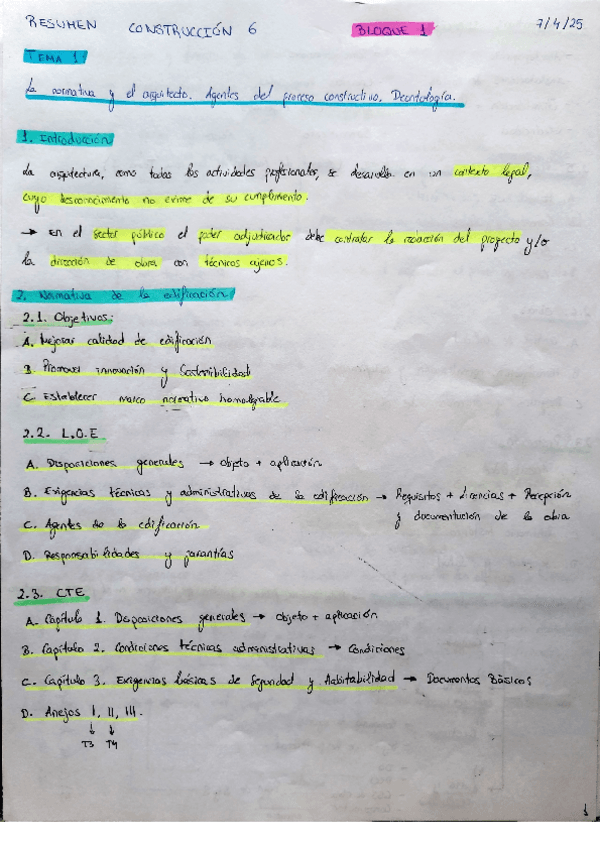 RESUMEN CONSTRUCCIÓN 6 BLOQUE 1 7/4/25
TEMA 1:
La normativa y el arquitecto. Agentes del proceso constructivo. Deontología.
1. Introducción
La arquitectura, como todas las actividades profesionales, se desarrolla en un contexto legal,
cuyo desconocimiento no exime de su cumplimiento.
→ En el sector público el poder adjudicador debe contratar la redacción del proyecto y/o
la dirección de obra con técnicos ajenos.
2. Normativa de la edificación
2.1. Objetivos:
A. Mejorar calidad de edificación
B. Promover innovación y Sostenibilidad
C. Establecer marco normativo homologable
2.2. L.O.E
A. Disposiciones generales → objeto + aplicación
B. Exigencias técnicas y administrativas de la edificación → Requisitos + Licencias + Recepción
y documentación de la obra
C. Agentes de la edificación
D. Responsabilidades y garantías
2.3. CTE
A. Capítulo 1. Disposiciones generales → objeto + aplicación
B. Capítulo 2. Condiciones técnicas administrativas → Condiciones
C. Capítulo 3. Exigencias básicas de Seguridad y Habitabilidad → Documentos Básicos
D. Anejos I, II, III.
↓ ↓
T3 T4
1